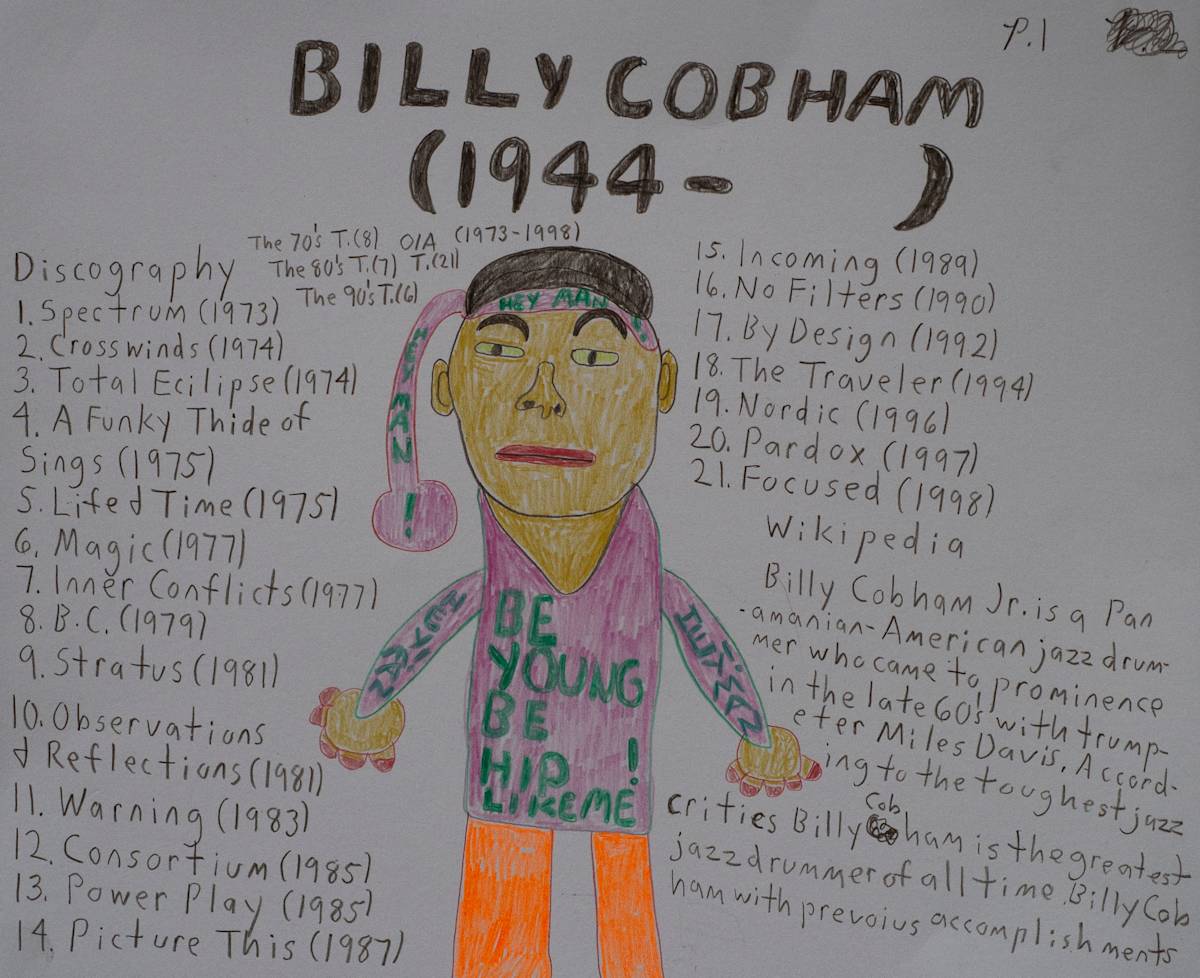 P.1
BILLY COBHAM
(1944- )
The 70's T.(8) O/A (1973-1998)
The 80's T.(7) T.(21)
The 90's T.(6)
Discography
1. Spectrum (1973)
2. Crosswinds (1974)
3. Total Ecilipse (1974)
4. A Funky Thide of
Sings (1975)
5. Lifed Time (1975)
6. Magic (1977)
7. Inner Conflicts (1977)
8. B.C. (1979)
9. Stratus (1981)
10. Observations
& Reflections (1981)
11. Warning (1983)
12. Consortium (1985)
13. Power Play (1985)
14. Picture This (1987)
HEY MAN !
HEY MAN !
HEY MAN
HEY MAN
BE
YOUNG
BE
HIP !
LIKE ME
15. Incoming (1989)
16. No Filters (1990)
17. By Design (1992)
18. The Traveler (1994)
19. Nordic (1996)
20. Pardox (1997)
21. Focused (1998)
Wikipedia
Billy Cobham Jr. is a Pan
-amanian-American jazz drum-
mer who came to prominence
in the late 60's with trump-
eter Miles Davis. Accord-
ing to the toughest jazz
critics Billy Cobham is the greatest
jazz drummer of all time. Billy Cob
ham with prevoius accomplishments